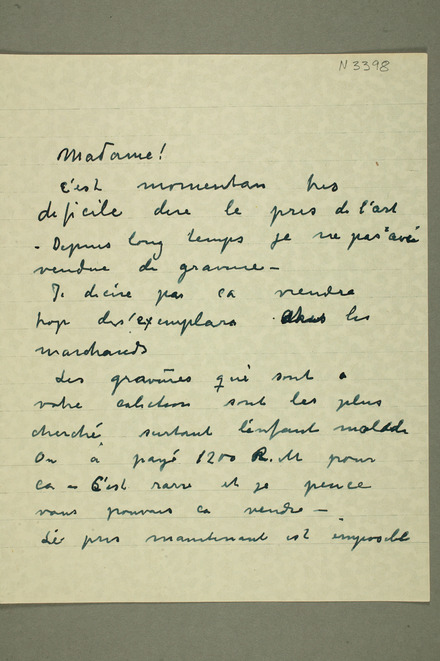 N 3398
Madame!
C'est momentan tres
deficile dire le pris de l'art
- Depuis long temps je ne pas avoi
vendue de gravure -
Je desire pas ca vendre
trop des exemplars chès les
marchands
Les gravures qui sont a
votre colection sont les plus
cherché, surtout l'enfant malade
On a payé 1200 R.M pour
ca - C'est rarre et je pence
vous pouvais ca vendre -
Le pris maintenant est imposible